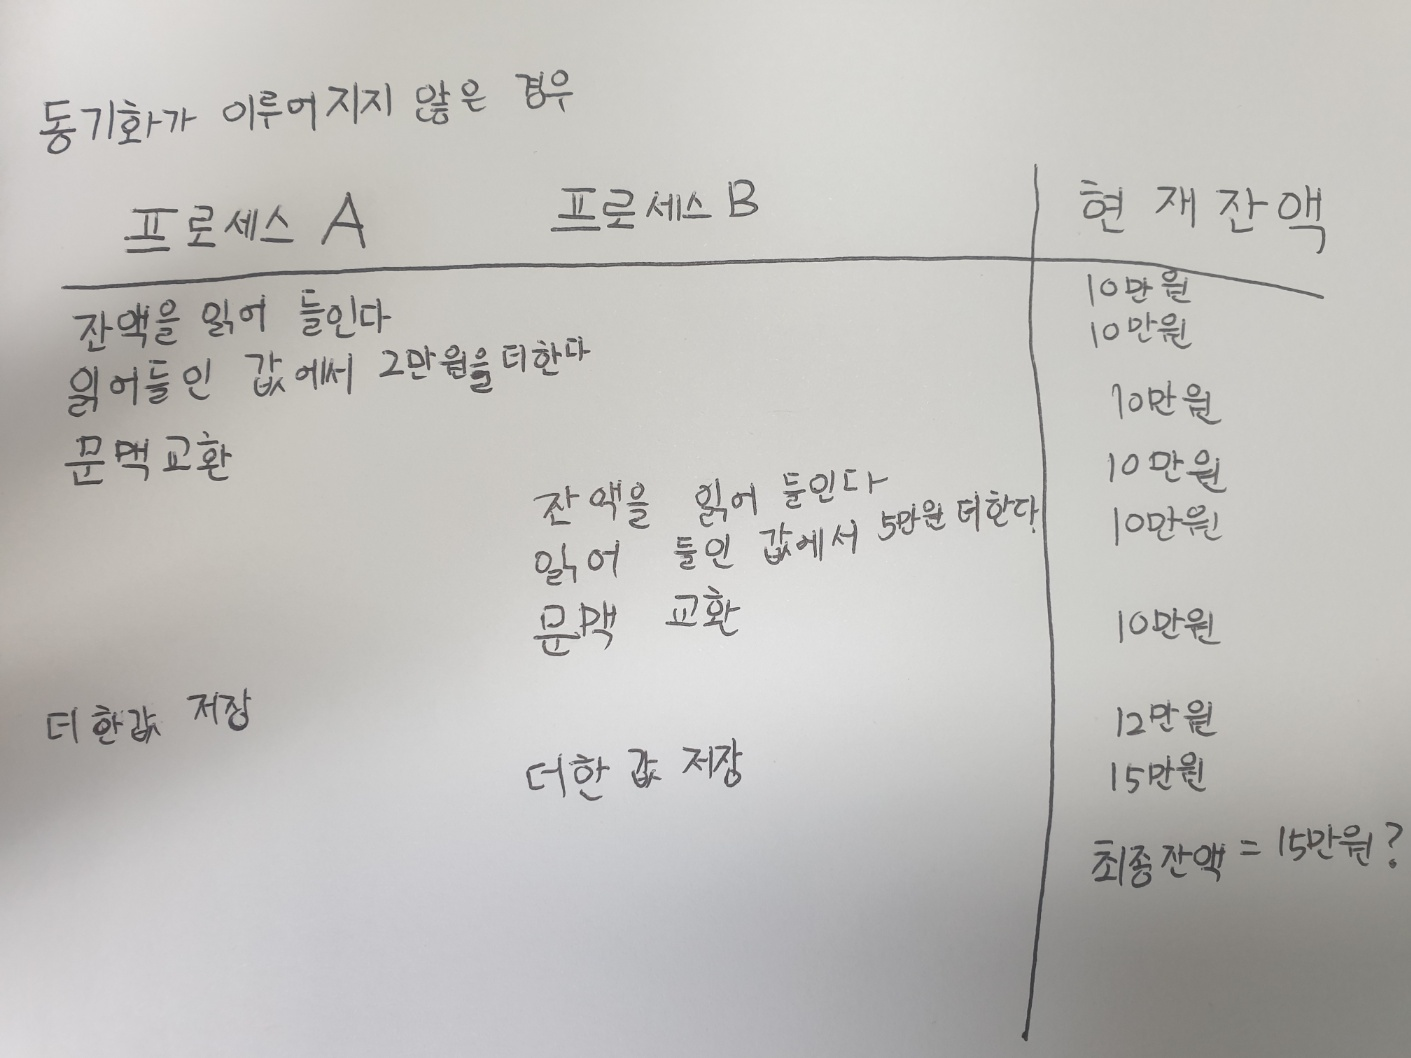 동기화가 이루어지지 않은 경우
프로세스 A 프로세스 B 현재잔액
10만원
잔액을 읽어 들인다 10만원
읽어들인 값에서 2만원을 더한다 10만원
문맥교환 10만원
잔액을 읽어 들인다 10만원
읽어 들인 값에서 5만원 더한다
문맥 교환 10만원
더한값 저장 12만원
더한 값 저장 15만원
최종잔액 = 15만원?